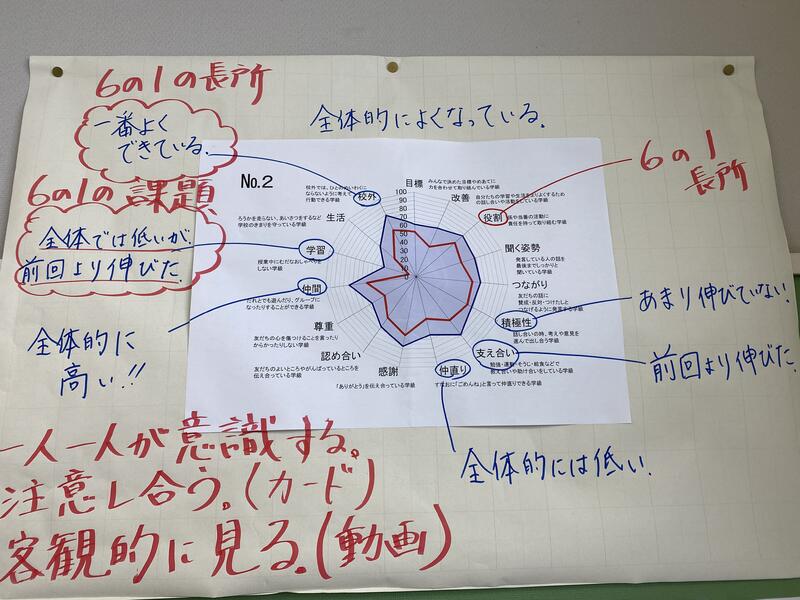 6の1の長所
一番よく
できている。
全体的によくなっている。
6の1の課題
全体では低いが、
前回より伸びた。
全体的に
高い!!
6の1
長所
あまり伸びていない。
前回より伸びた。
全体的には低い。
No.2
目標
みんなで決めた目標やめあてに
力を合わせて取り組んでいる学級
改善
自分たちの学習や生活をよりよくするため
の話し合いや活動をしている学級
役割
係や当番の活動に
責任を持って取り組む学級
聞く姿勢
発言している人の話を
最後までしっかりと
聞いている学級
つながり
友だちの話に
賛成・反対・つけたしと
つなげるように発言する学級
積極性
話し合いの時、考えや意見を
進んで出し合う学級
支え合い
勉強・運動・そうじ・給食などで
教え合いや助け合いをしている学級
仲直り
すなおに「ごめんね」と言って仲直りできる学級
感謝
「ありがとう」を伝え合っている学級
認め合い
友だちのよいところやがんばっているところを
伝え合っている学級
尊重
友だちの心を傷つけることを言ったり
からかったりしない学級
仲間
だれとでも遊んだり、グループに
なったりすることができる学級
学習
授業中にむだなおしゃべりを
しない学級
生活
ろうかを走らない、あいさつをするなど
学校のきまりを守っている学級
校外
校外では、ひとのめいわくに
ならないように考えて
行動できる学級
100
90
80
70
60
50
40
30
20
10
0
一人一人が意識する。
注意し合う。(カード)
客観的に見る。(動画)